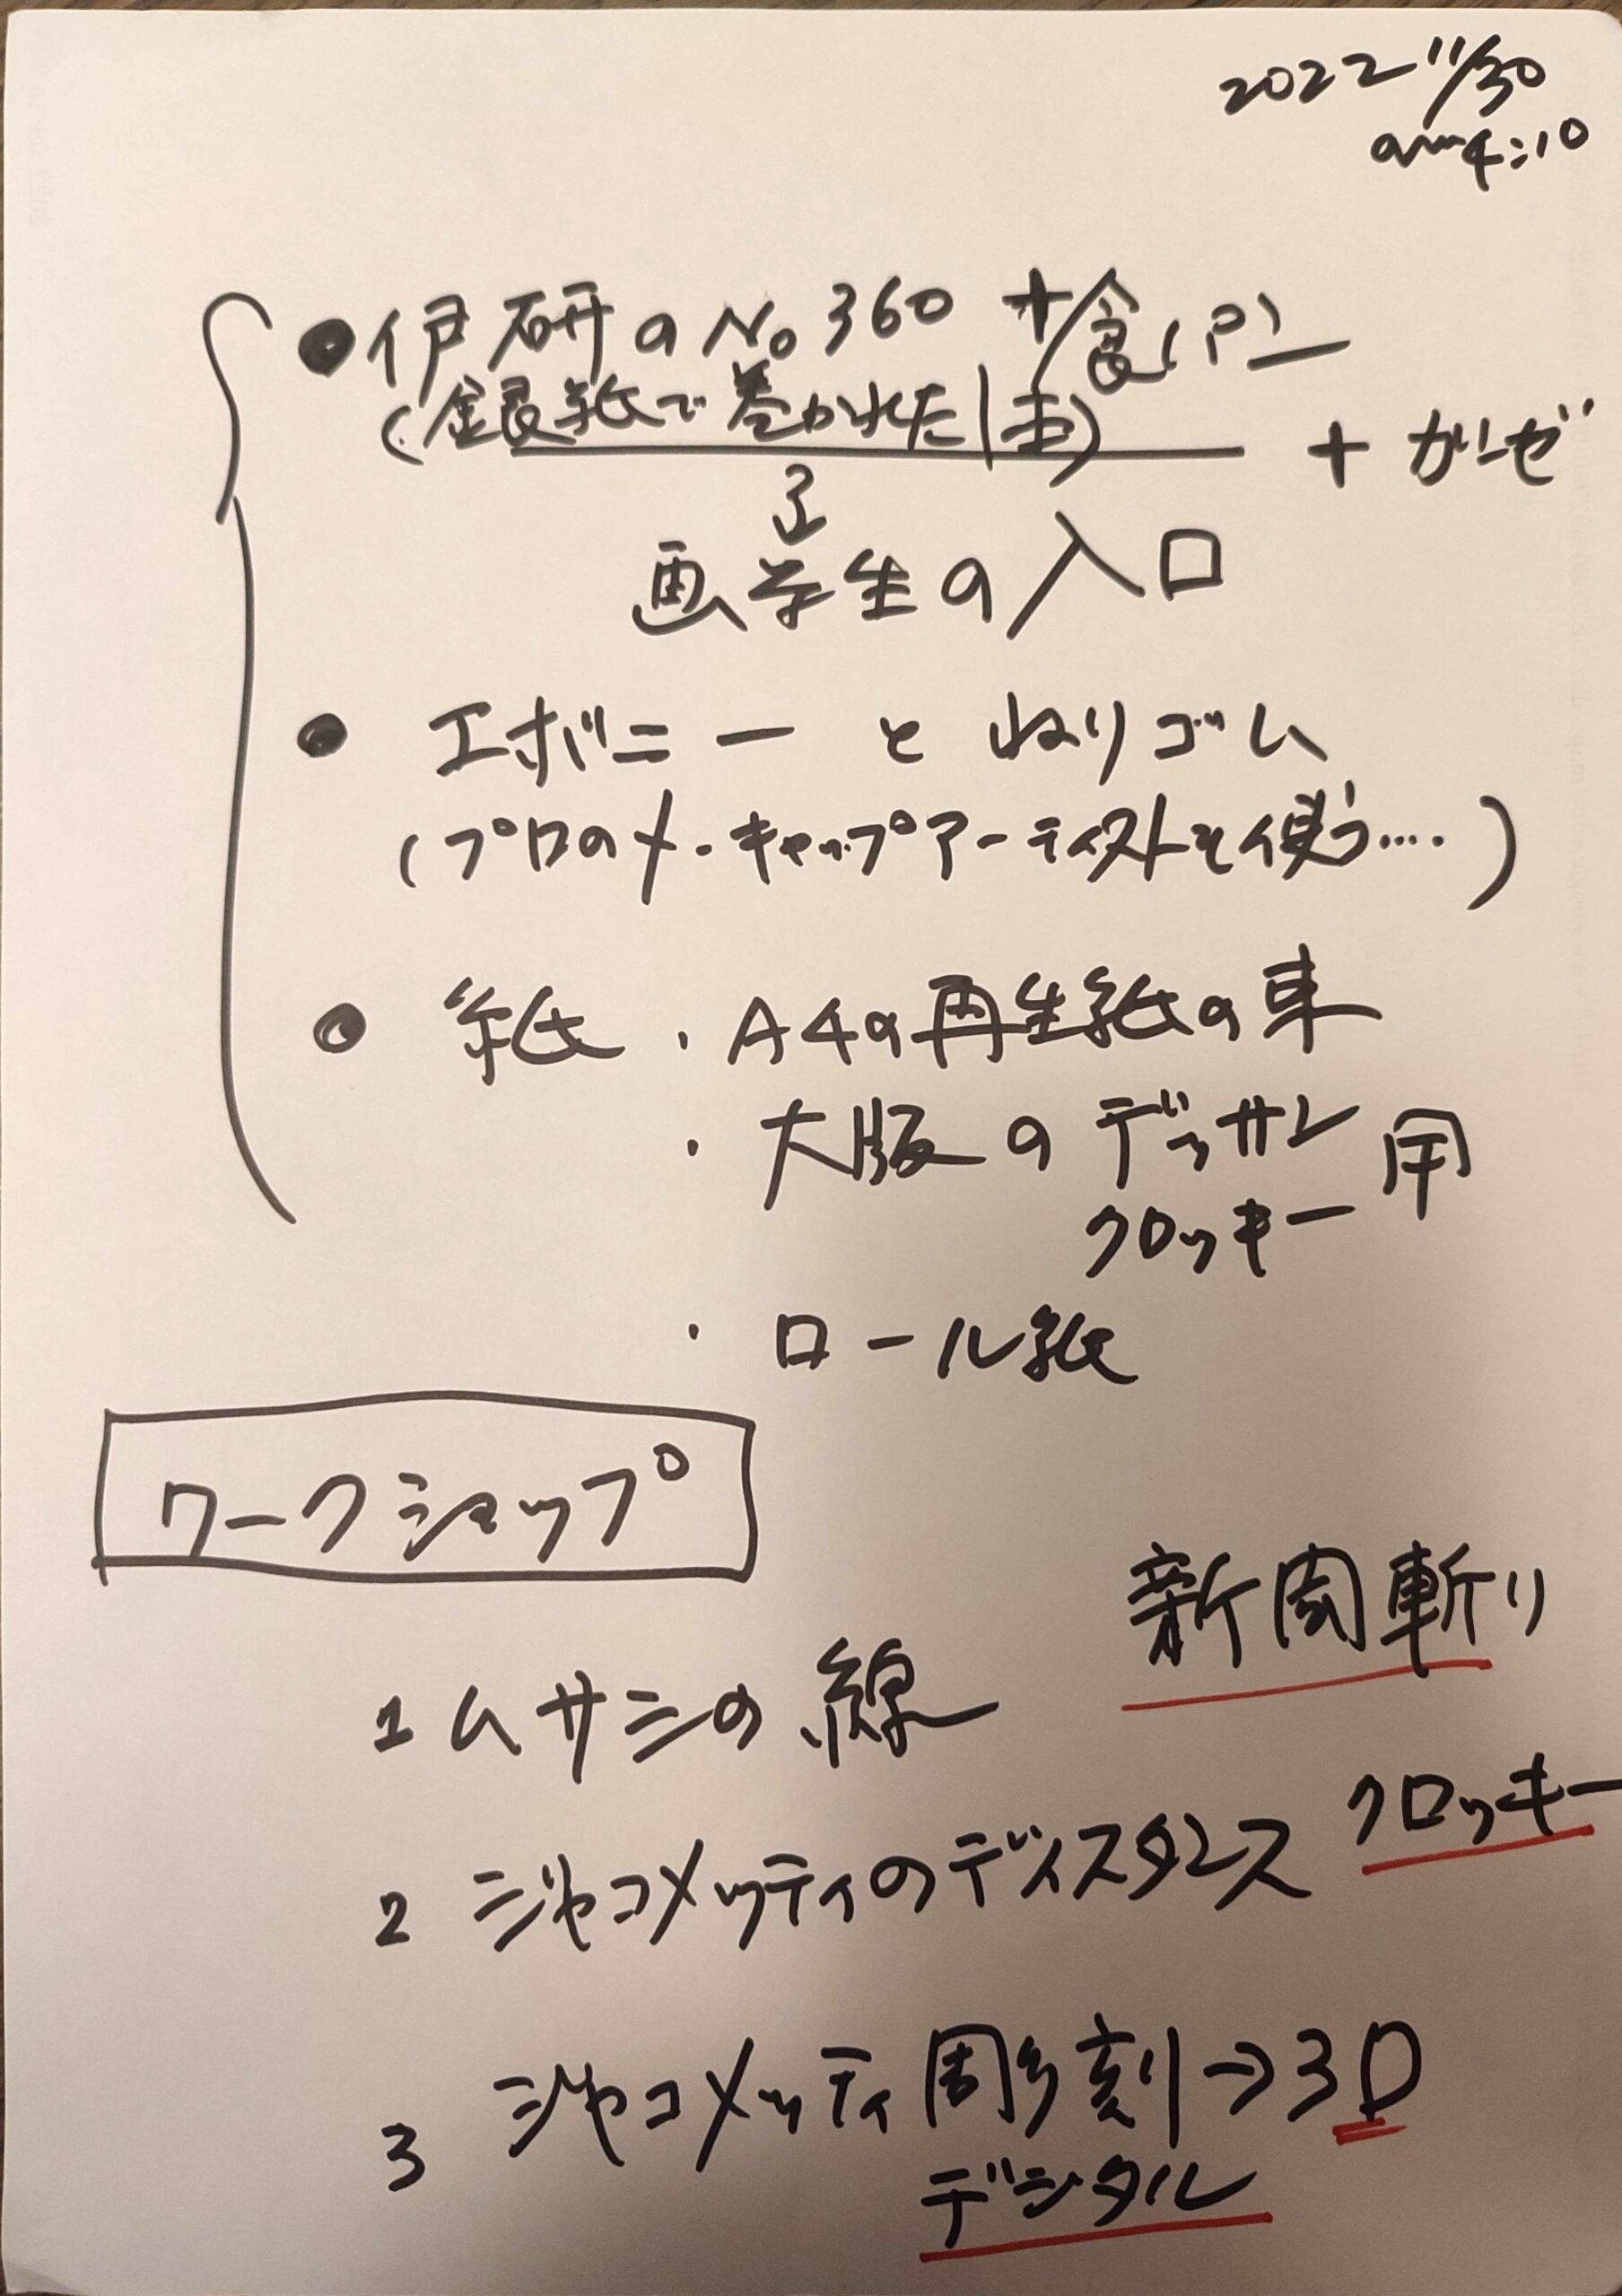 2022 11/30
am4:10
●伊研のNo360 + 食パン
(銀紙で巻かれた 木炭) + ガーゼ
画学生の入口
● エボニーとねりゴム
(プロのメーキャップアーティストも使う‥‥)
● 紙 ・A4の再生紙の束
・大版のデッサン用
クロッキー
・ロール紙
ワークショップ
新聞斬り
1 ムサシの線
クロッキー
2 ジャコメッティのディスタンス
3 ジャコメッティ彫刻→3D
デジタル